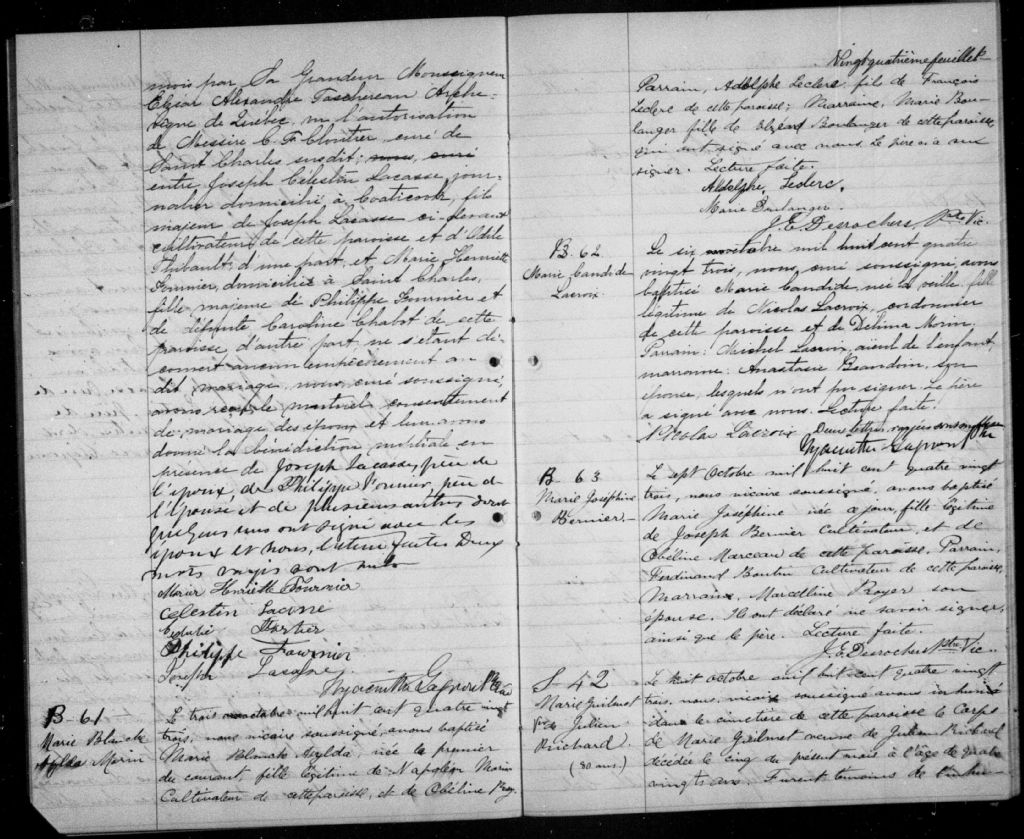 mois par Sa Grandeur Monseigneur
Elzéar Alexandre Taschereau Arche-
vêque de Québec, vu l'autorisation
de Messire C. F. Cloutier curé de
Saint Charles susdit; nous, curé
entre Joseph Célestin Lacasse, jour-
nalier domicilié à Coaticook, fils
majeur de Joseph Lacasse ci-devant
cultivateur de cette paroisse et d'Odile
Thibault d'une part, et Marie Henriette
Fournier, domiciliée à Saint Charles,
fille majeure de Philippe Fournier et
de défunte Caroline Chabot de cette
paroisse d'autre part, ne s'étant dé-
couvert aucun empêchement au
dit mariage, nous, curé soussigné,
avons reçu le mutuel consentement
de mariage des époux et leur avons
donné la bénédiction nuptiale en
présence de Joseph Lacasse, père de
l'époux, de Philippe Fournier, père de
l'épouse et de plusieurs autres dont
quelques uns ont signé avec les
époux et nous, lecture faite. Deux
mots rayés sont nuls
Marie Henriette Fournier
Celestin Lacasse
Fortier
Philippe Fournier
Joseph Lacasse
Hyacinthe Gagnon Ptre Curé
B- 61
Marie Blanche
Azylda Morin
Le trois octobre mil huit cent quatre vingt
trois, nous vicaire soussigné, avons baptisé
Marie Blanche Azylda, née le premier
du courant fille légitime de Napoléon Morin
Cultivateur de cette paroisse, et de Obéline Roy.
Vingt quatrième feuillet
Parrain, Adolphe Leclerc, fils de François
Leclerc de cette paroisse; Marraine, Marie Bou-
langer fille de Elzéar Boulanger de cette paroisse
qui ont signé avec nous. Le père n'a su
signer. Lecture faite.
Aldolphe, Leclerc.
Marie Boulanger.
J. E. Desrochers, Ptre Vic.
B- 62
Marie Candide
Lacroix.
Le six octobre mil huit cent quatre
vingt trois, nous, curé soussigné, avons
baptisé Marie Candide, née la veille, fille
légitime de Nicolas Lacroix, cordonnier
de cette paroisse et de Délima Morin.
Parrain: Michel Lacroix, aïeul de l'enfant,
marraine: Anastasie Beaudoin, son
épouse, lesquels n'ont pu signer. Le père
a signé avec nous. Lecture faite.
Nicolas Lacroix Deux lettres rayées sont nulles
Hyacinthe Gagnon Ptre
B- 63
Marie Joséphine
Bernier.-
Le sept Octobre mil huit cent quatre vingt
trois, nous vicaire soussigné, avons baptisé
Marie Joséphine née ce jour, fille légitime
de Joseph Bernier Cultivateur, et de
Obéline Marceau de cette paroisse. Parrain,
Ferdinand Boutin Cultivateur de cette paroisse,
Marraine, Marcelline Royer son
épouse. Ils ont déclaré ne savoir signer,
ainsi que le père. Lecture faite.
J. E. Desrochers Ptre Vic.
S- 42
Marie Guilmet
Vve Julien
Richard
(80 ans.)
Le huit octobre mil huit cent quatre vingt
trois, nous, vicaire soussigné avons inhumé
dans le cimetière de cette paroisse le Corps
de Marie Guilmet veuve de Julien Richard
décédée le cinq du présent mois à l'âge de quatre
vingts ans. Furent témoins de l'inhu-